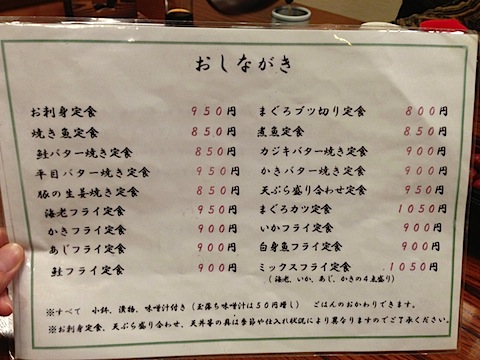 おしながき
お刺身定食 950円
焼き魚定食 850円
鮭バター焼き定食 850円
平目バター焼き定食 950円
豚の生姜焼き定食 850円
海老フライ定食 950円
かきフライ定食 900円
あじフライ定食 900円
鮭フライ定食 900円
まぐろブツ切り定食 800円
煮魚定食 850円
カジキバター焼き定食 900円
かきバター焼き定食 900円
天ぷら盛り合わせ定食 950円
まぐろカツ定食 1050円
いかフライ定食 900円
白身魚フライ定食 900円
ミックスフライ定食 1050円
(海老、いか、あじ、かきの4点盛り)
※すべて 小鉢、漬物、味噌汁付き(玉落ち味噌汁は50円増し) ごはんのおかわりできます。
※お刺身定食、天ぷら盛り合わせ、天丼等の具は季節や仕入れ状況により異なりますのでご了承ください。